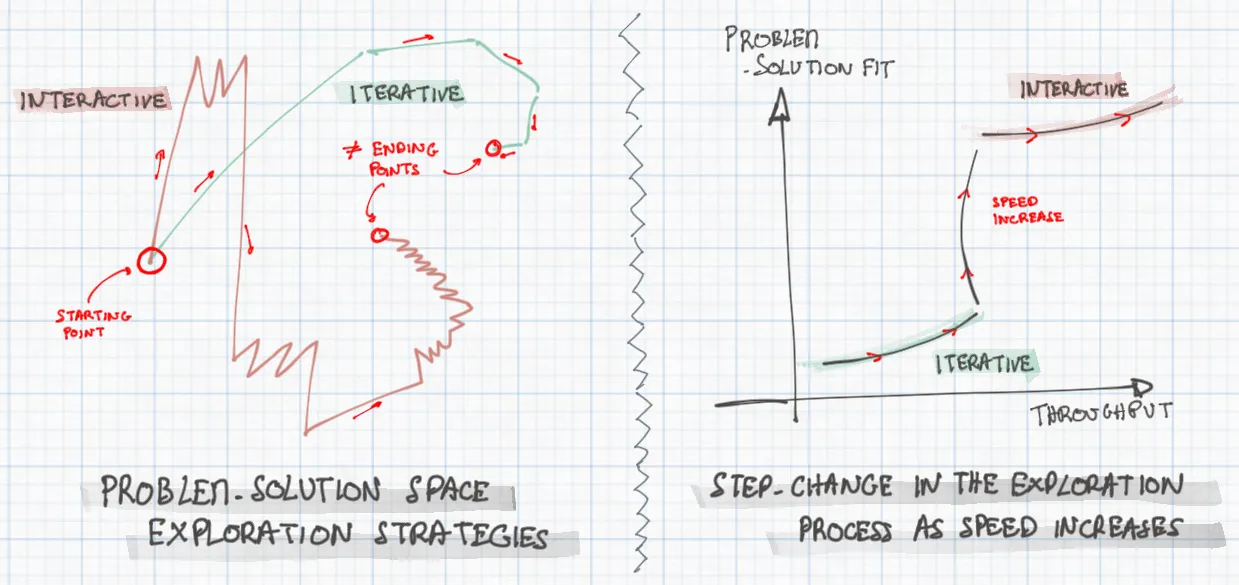 INTERACTIVE
ITERATIVE
≠ ENDING
POINTS
STARTING
POINT
PROBLEM-SOLUTION SPACE
EXPLORATION STRATEGIES
PROBLEM
-SOLUTION FIT
INTERACTIVE
SPEED
INCREASE
ITERATIVE
THROUGHPUT
STEP-CHANGE IN THE EXPLORATION
PROCESS AS SPEED INCREASES